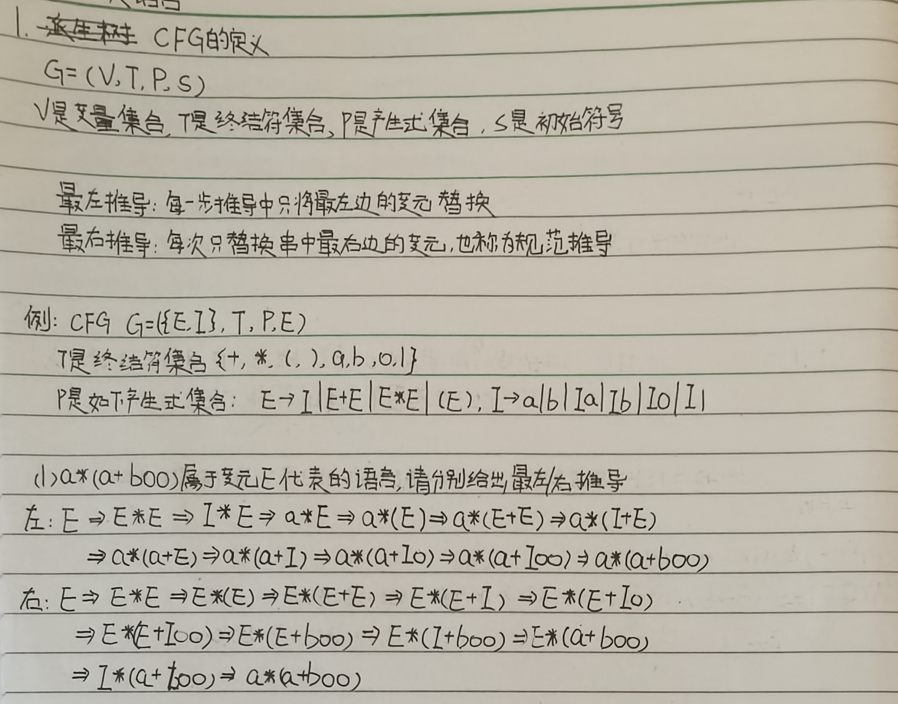 1. CFG的定义
G=(V,T,P,S)
V是变量集合,T是终结符集合,P是产生式集合,S是初始符号
最左推导:每一步推导中只将最左边的变元替换
最右推导:每次只替换串中最右边的变元,也称为规范推导
例: CFG G=({E,I},T,P,E)
T是终结符集合{+,*,(,),a,b,0,1}
P是如下产生式集合: E→I|E+E|E*E|(E), I→a|b|Ia|Ib|I0|I1
(1)a*(a+b00)属于变元E代表的语言,请分别给出最左/右推导
左: E⇒E*E⇒I*E⇒a*E⇒a*(E)⇒a*(E+E)⇒a*(I+E)
⇒a*(a+E)⇒a*(a+I)⇒a*(a+I0)⇒a*(a+I00)⇒a*(a+b00)
右: E⇒E*E⇒E*(E)⇒E*(E+E)⇒E*(E+I)⇒E*(E+I0)
⇒E*(E+I00)⇒E*(E+b00)⇒E*(I+b00)⇒E*(a+b00)
⇒I*(a+b00)⇒a*(a+b00)